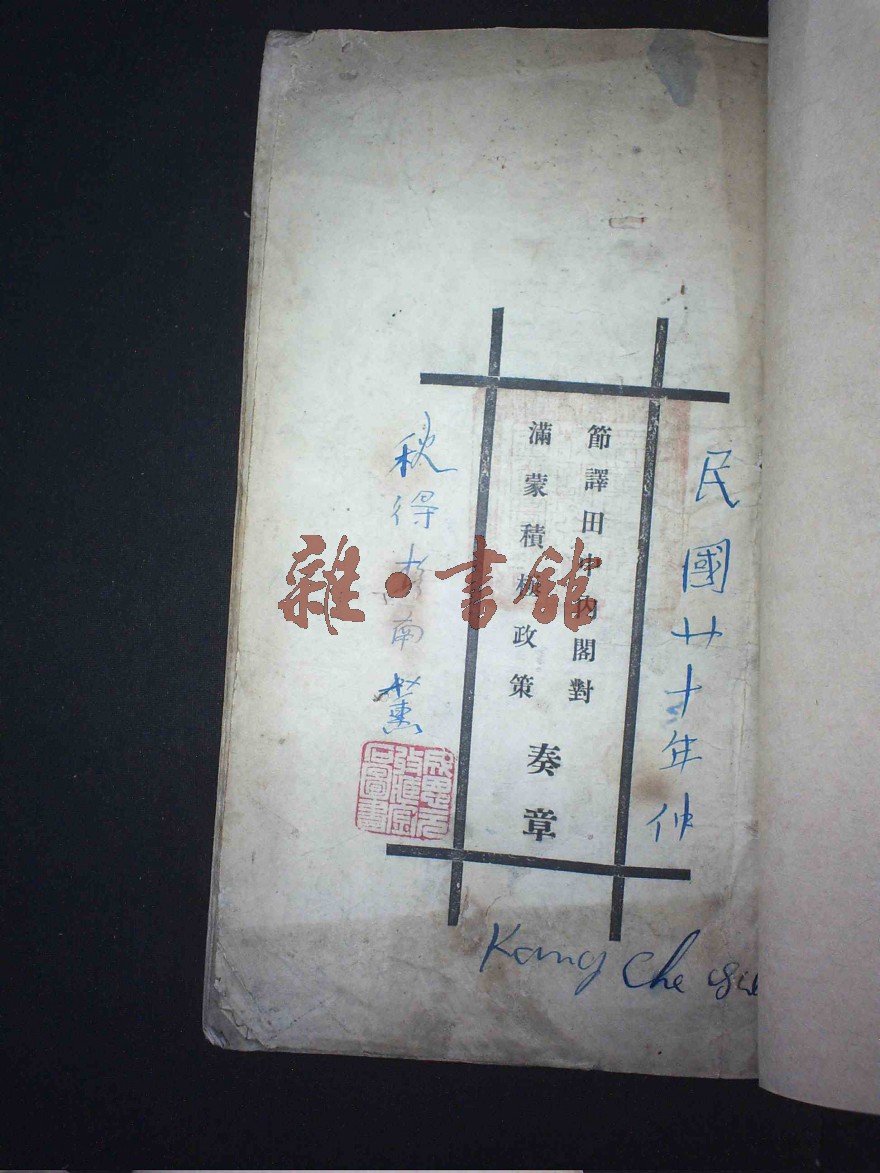 民國廿十年仲
節譯田中內閣對
滿蒙積極政策
奏章
秋得於南薰
雜·書館
Kang Che